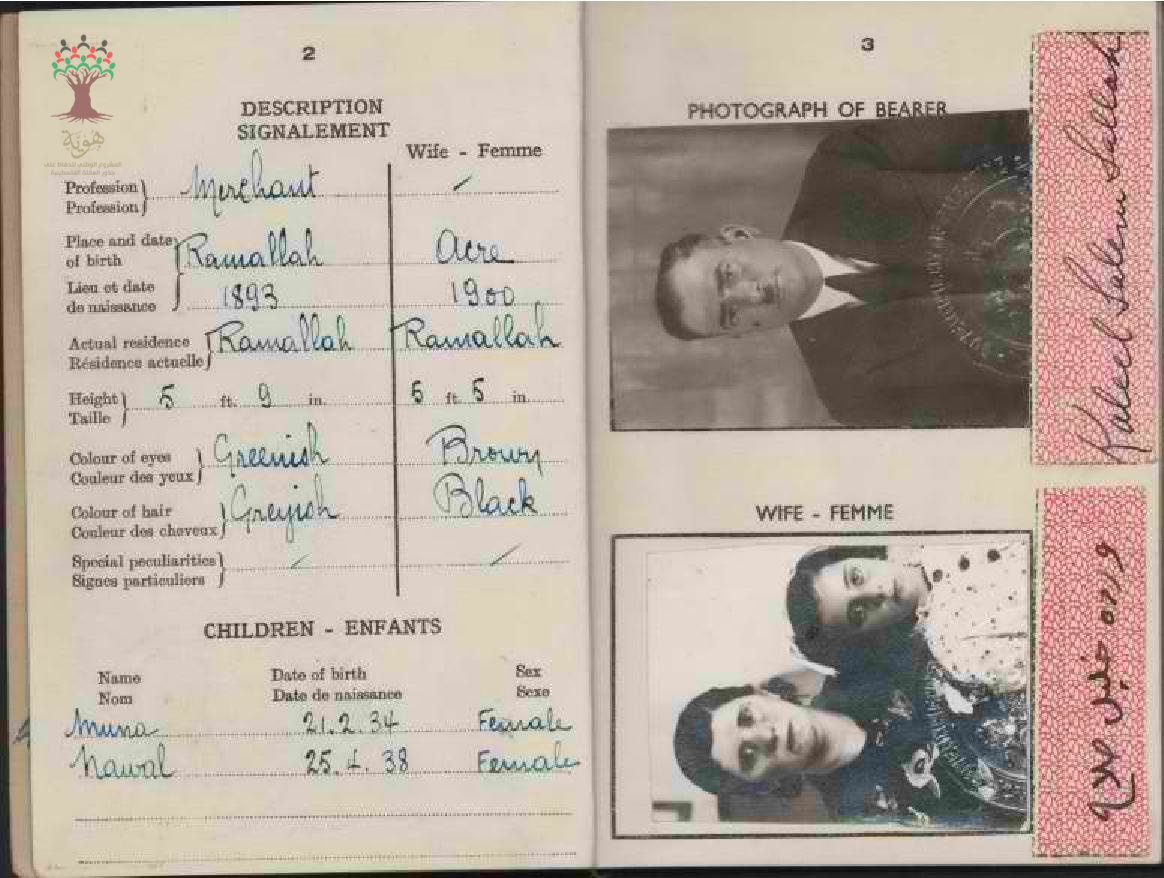 هوية
2
DESCRIPTION
SIGNALEMENT
Wife - Femme
Profession } Merchant /
Profession
Place and date of birth } Ramallah Acre
Lieu et date de naissance 1893 1900
Actual residence } Ramallah Ramallah
Résidence actuelle
Height } 5 ft. 9 in. 5 ft. 5 in.
Taille
Colour of eyes } Greenish Brown
Couleur des yeux
Colour of hair } Greyish Black
Couleur des cheveux
Special peculiarities } / /
Signes particuliers
CHILDREN - ENFANTS
Name Date of birth Sex
Nom Date de naissance Sexe
Muna 21.2.34 Female
Nawal 25.4.38 Female
3
PHOTOGRAPH OF BEARER
Kaleel Salem Sallah
WIFE - FEMME
خليل صلاح